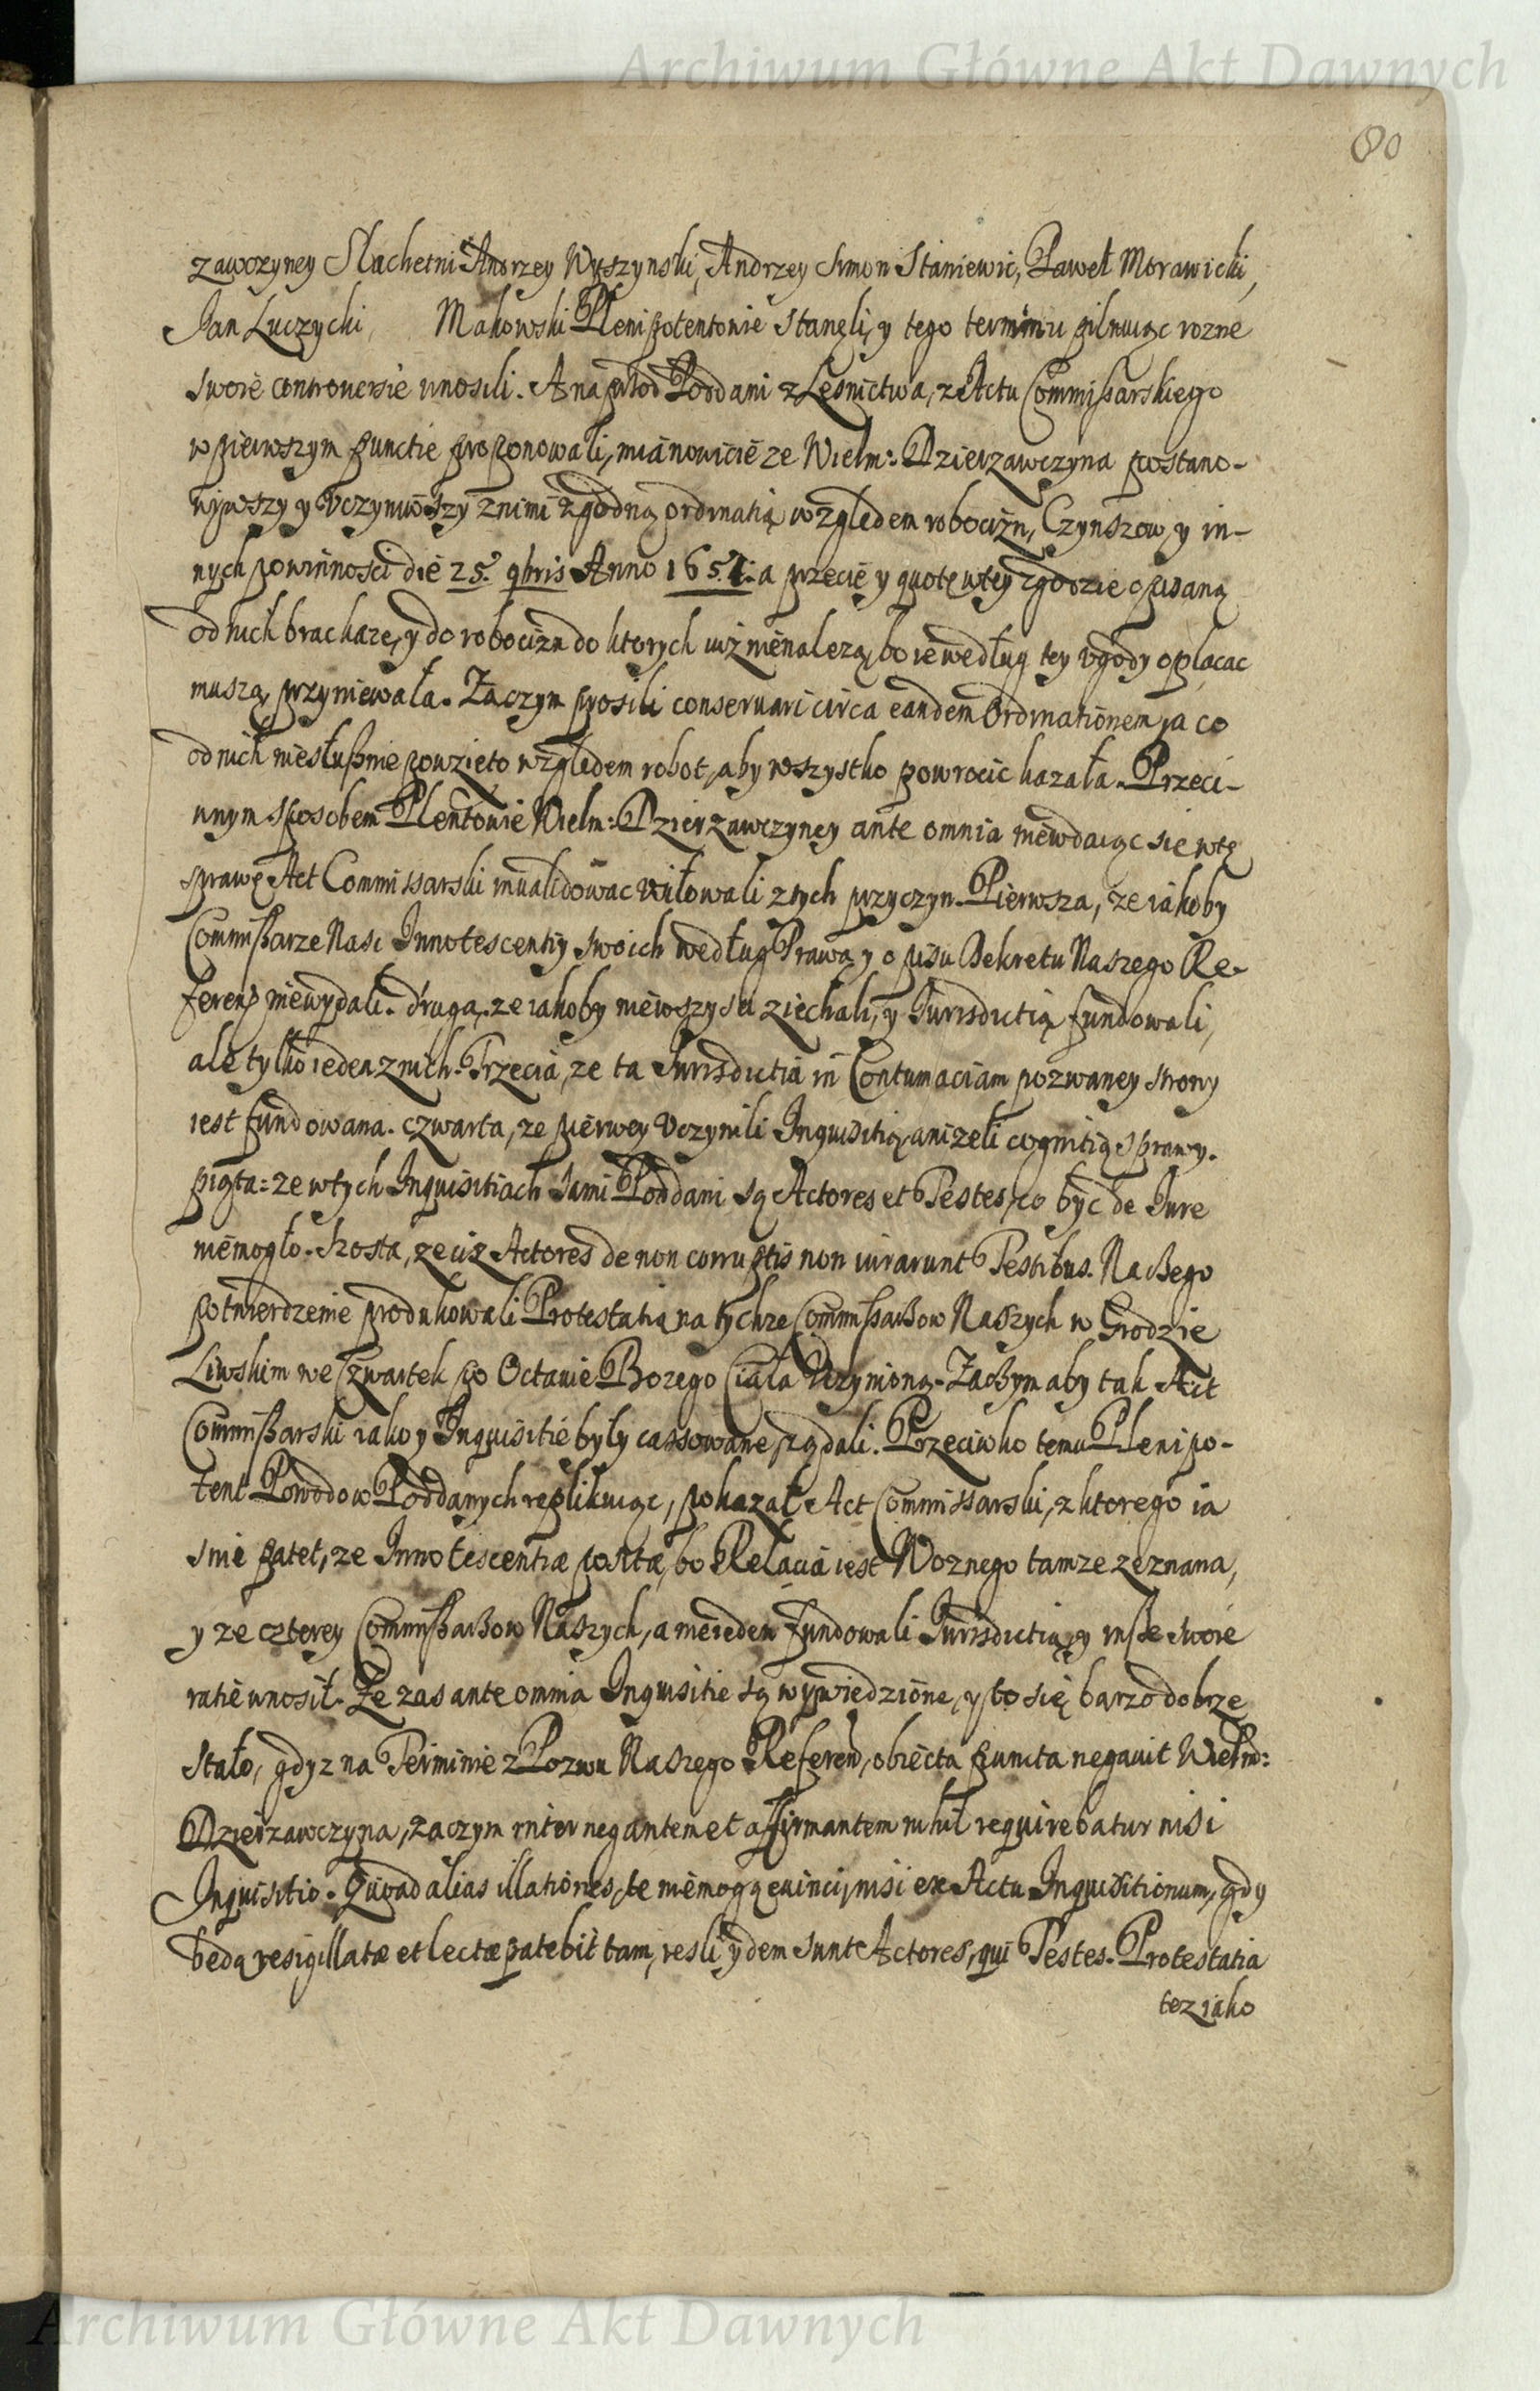 Archiwum Główne Akt Dawnych
80
zawczyney Slachetni Andrzey Wyszynski, Andrzey Simon Staniewic, Paweł Morawicki,
Jan Luczycki, Makowski Plenipotentowie stanęli, y tego terminu pilnuiąc rozne
swoie controuersie wnosili. A naprzod Poddani z Lesnictwa, z Actu Commissarskiego
w pierwszym punctie proponowali, mianowicie ze Wielm: Dzierzawczyna postano-
wiwszy y vczyniwszy z nimi zgodną ordinatią względem robocizn, Czynszow y in-
nych powinnosci die 25. 9bris Anno 1651. a przecię y quotę w tey zgodzie opisaną
od nich brac kaze, y do robocizn do ktorych iuz nienalezą, bo ie według tey vgody opłacac
muszą, przyniewala. Zaczym prosili conseruari circa eandem Ordinationem, a co
od nich niesłusznie powzięto względem robot, aby wszystko powrocic kazała. Przeci-
wnym sposobem Plentowie Wielm: Dzierzawczyney ante omnia niewdaiąc się w tę
sprawę Act Commissarski inualidowac vsiłowali z tych przyczyn. Pierwsza, ze iakoby
Commissarze Nasi Innotescentiy swoich według Prawa y opisu Dekretu Naszego Re-
feren niewydali. druga, ze iakoby niewszysci ziechali, y Iurisdictią fundowali,
ale tylko ieden z nich. Trzecia, ze ta Iurisdictia in Contumaciam pozwaney strony
iest fundowana. czwarta, ze pierwey Vczynili Inquisitią, anizeli cognitią sprawy.
piąta: ze w tych Inquisitiach sami Poddani są Actores et Testes, co byc de Iure
niemogło. szosta, ze ciz Actores de non corruptis non iurarunt Testibus. Na czego
potwierdzenie produkowali Protestatią na tychze Commissarzow Naszych w Grodzie
Liwskim we Czwartek po Octauie Bozego Ciała Vczynioną. Zaczym aby tak Act
Commissarski iako y Inquisitie były cassowane, ządali. Przeciwko temu Plenipo-
tent Powodow Poddanych replikuiąc, pokazał Act Commissarski, z ktorego ia
snie patet, ze Innotescentiæ positæ, bo Relacia iest Woznego tamze zeznana,
y ze czterey Commissarzow Naszych, a nieieden fundowali Iurisdictią, y insze swoie
ratie wnosił. Ze zas ante omnia Inquisitie są wywiedzione, y to się barzo dobrze
stało, gdyz na Terminie z Pozwu Naszego Referen, obiecta puncta negauit Wielm:
Dzierzawczyna, zaczym inter negantem et affirmantem nihil requirebatur nisi
Inquisitio. Quoad alias illationes, te niemogą euinci, nisi ex Actu Inquisitionum, gdy
będą resigillatæ et lectæ patebit tam, iesli ydem sunt Actores, qui Testes. Protestatia
tez iako
Archiwum Główne Akt Dawnych